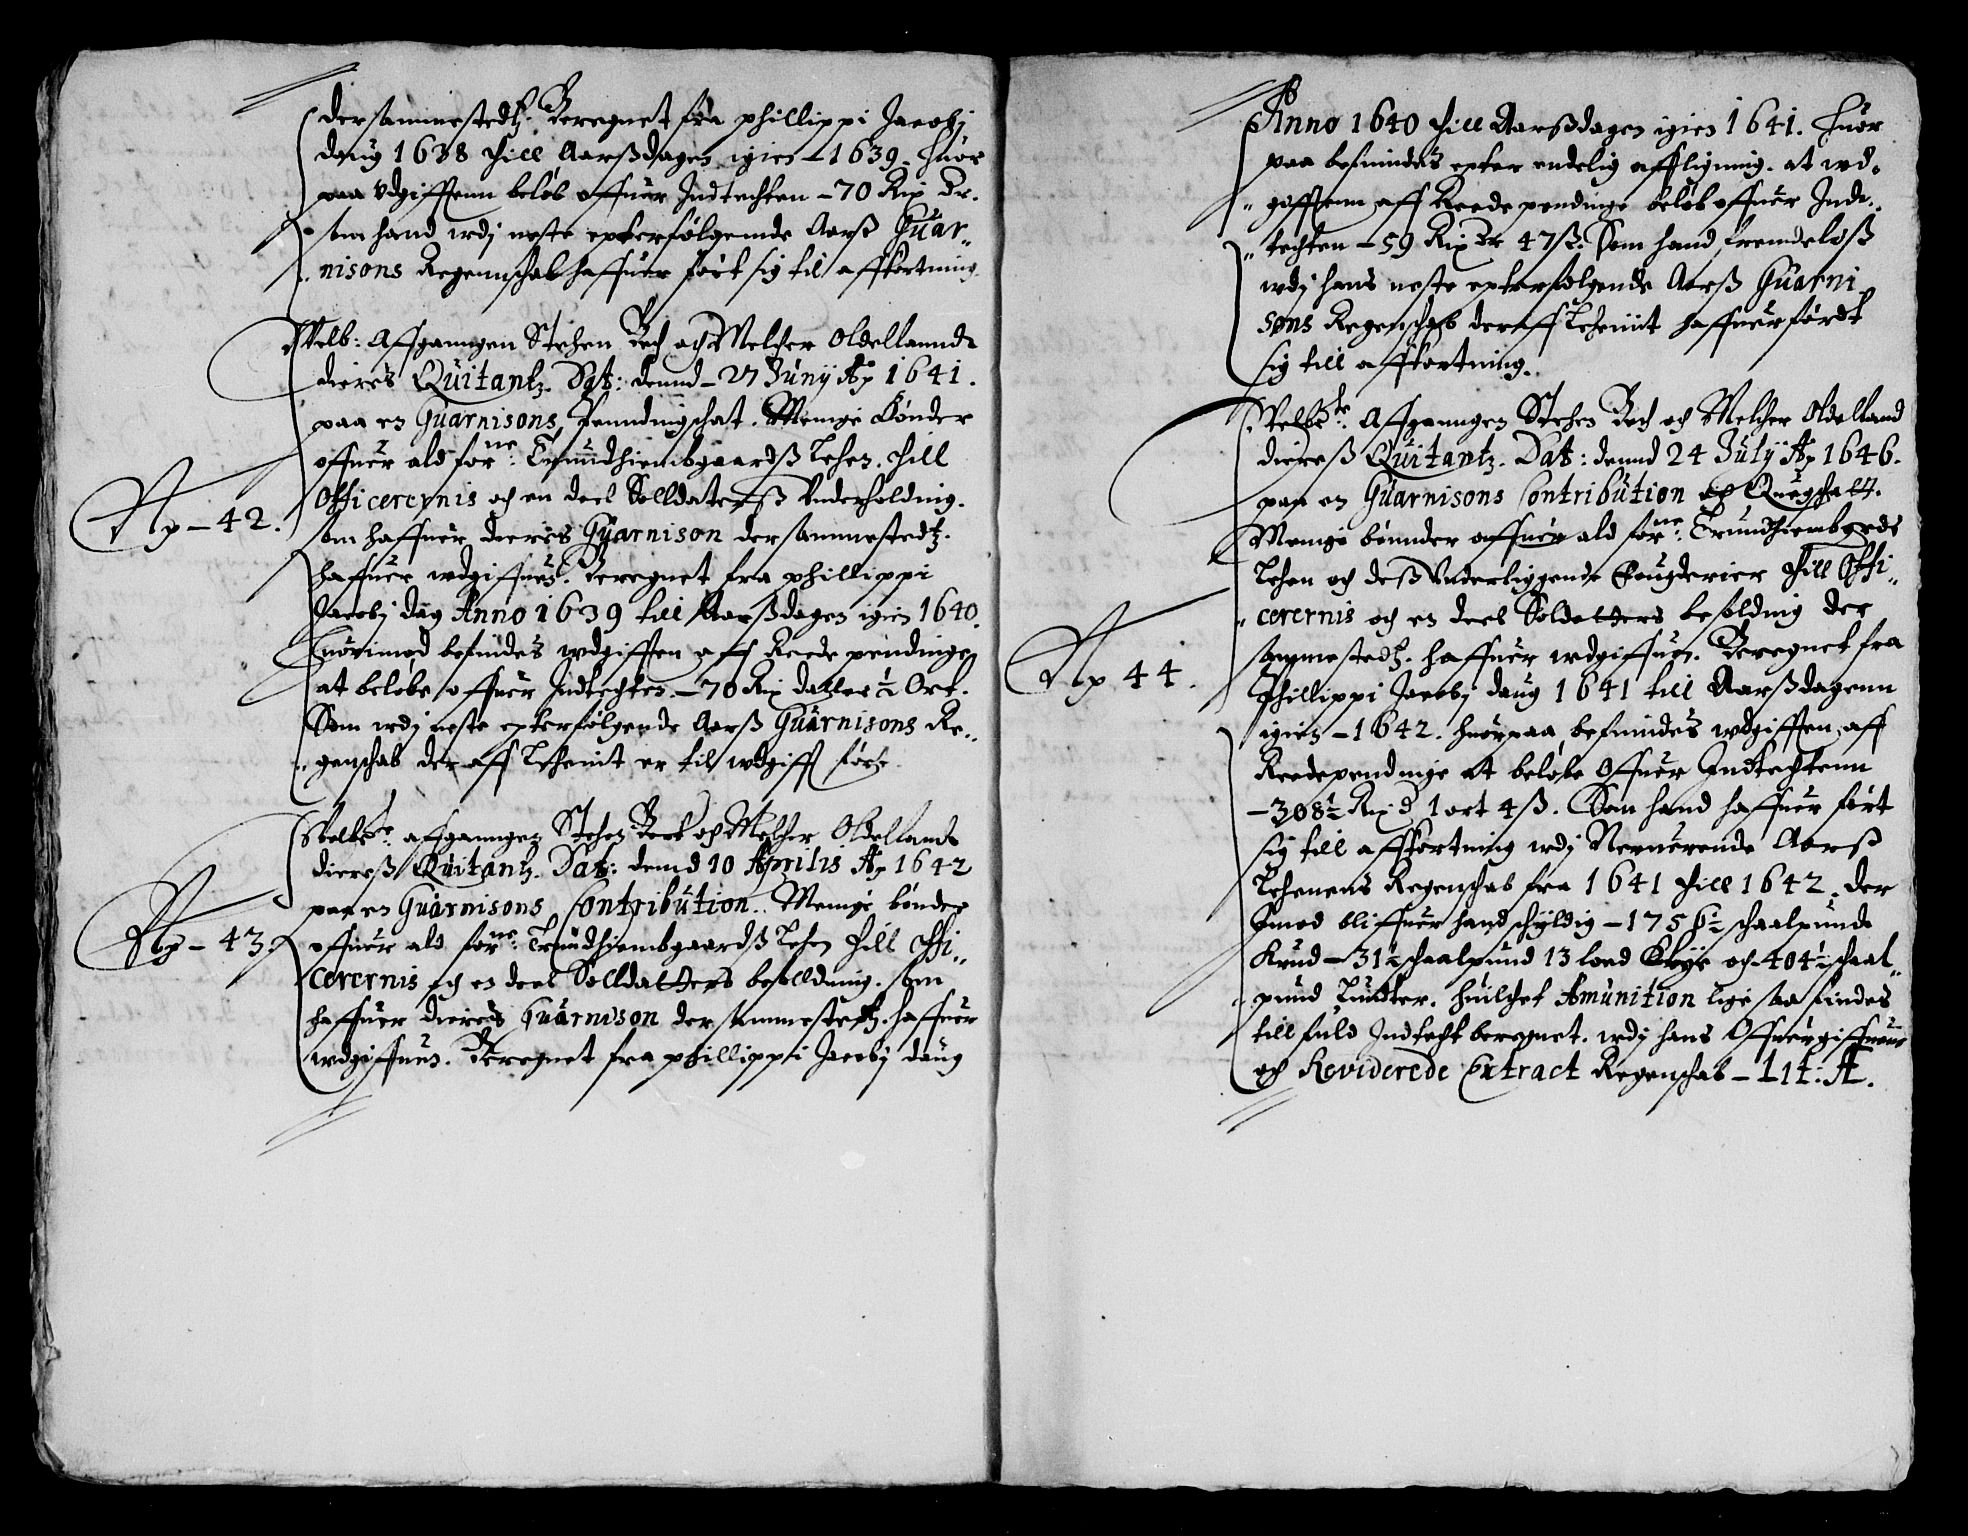 dersammestedtz. Beregnet fra phillippi Jacobj
daug 1638 thill Aarßdagen igien – 1639. huor
paa Vdgifftenn beløb offuer Indtechten – 70 Rix Dr.
som hand wdj neste epterfølgemde Aarß Guar„
„nisons Regennschab haffuer ført sig til affkortning
Velb: Affganngen Stehen Bech och Melcher Oldellannds
dieres Quitantz. Dat: dennd – 27 Junij Ao 1641.
paa en Guarnisons Penndingschat. Menige Bønder
offuer ald forne: Trundhiembgaardß Lehen. thill
Officerernis och en deel Solldaterß Vnderholdnig.
Ao – 42.
som haffuer dieris Guarnison dersammestedtz.
haffuer wdgiffuen. Beregnet fra phillippi
Jacobj daug Anno 1639 till Aarßdagen igien 1640.
huorimod befindes wdgifften aff Reede pendinge
at beløbe offuer Indtechten – 70 Rix daller ½ Ort.
Som wdj neste epterfølgende Aarß Guarnisons Re„
„genschab der aff Lehenit er til wdgifft ført.
Velbte: affganngen Stehen Beck och Melcher Oldellands
diereß Quitantz. Dat: dennd 10 Aprilis Ao 1642
paa en Guarnisons Contribution. Menige bønder
Ao – 43.
offuer ald forne: Trundhiembgaardß Lehen thill Offi„
cerernis och en deel Solldatters besolldning. som
haffuer dieres Guarnison der sammestedtz. haffuer
wdgiffuen. Beregnet fra phillippi Jacobj daug
Anno 1640 thill Aarßdagen igien 1641. huor
paa befindes epter endelig affligning. at wd„
„gifftenn aff Reede pendinge beløb offuer Inde„
„techten – 59 Rix Dr 47 ß. Som hand fremdeløß
wdj hans neste epterfølgende Aarß Guarni
sons Regenschab der aff Lehenit haffuer fördt
sig till affkortning.
Velbte: Affganngen Stehen Bech och Melcher Oldelland
diereß Quitantz. Dat: dennd 24 Julij Ao 1646.
paa en Guarnisons Contribution och Quegschatt.
Menige bønnder offuer ald forne: Trundhiembgrds
Lehen och deß Vnderliggende Fougderier thill Offi„
„cerernis och en deel Soldatters besoldnig der
Ao 44.
sammestedtz. haffuer wdgiffuen. Beregnet fra
Phillippi Jacobj daug 1641 till Aarßdagenn
igien – 1642. huorpaa befindes wdgifften aff
Reedependinge at beløbe Offuer Indtechtenn
– 308½ Rix d 1 ort 4 ß. Som hand haffuer ført
sig till affkortning wdj Nerverende Aarß
Lehenens Regenschab fra 1641 thill 1642. der
Imod bliffuer hand schyldig – 1756½ schaalpunde
Krud – 31½ schaalpund 13 loed Kuge och 404½ schaal„
„pund Luntter. huilchet Amunition lige saa findes
till fuld Indtecht beregnet. wdj hans Offuergiffuene
och Reviderede Extract Regenschab – Lit: A.